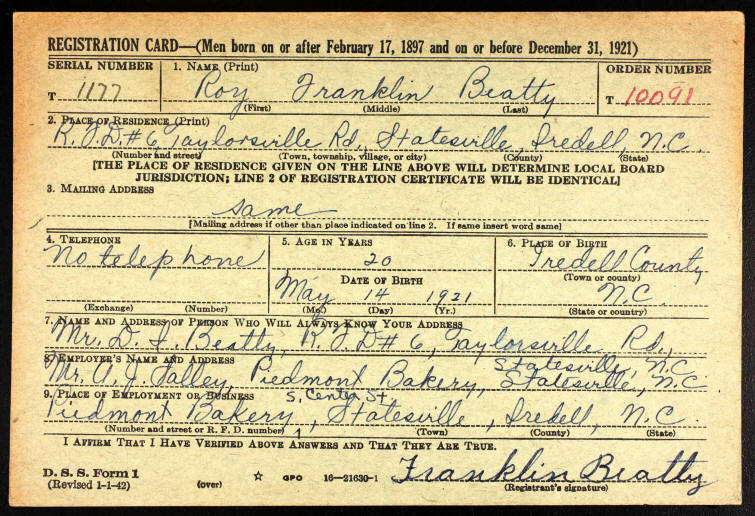 REGISTRATION CARD—(Men born on or after February 17, 1897 and on or before December 31, 1921)
SERIAL NUMBER 1. NAME (Print) ORDER NUMBER
T 1177 Roy Franklin Beatty T 10091
(First) (Middle) (Last)
2. PLACE OF RESIDENCE (Print)
R.F.D.#6, Taylorsville Rd., Statesville, Iredell, N.C.
(Number and street) (Town, township, village, or city) (County) (State)
[THE PLACE OF RESIDENCE GIVEN ON THE LINE ABOVE WILL DETERMINE LOCAL BOARD
JURISDICTION; LINE 2 OF REGISTRATION CERTIFICATE WILL BE IDENTICAL]
3. MAILING ADDRESS
same
[Mailing address if other than place indicated on line 2. If same insert word same]
4. TELEPHONE 5. AGE IN YEARS 6. PLACE OF BIRTH
No telephone 20 Iredell County
(Town or county)
DATE OF BIRTH
May 14 1921 N.C.
(Exchange) (Number) (Mo.) (Day) (Yr.) (State or country)
7. NAME AND ADDRESS OF PERSON WHO WILL ALWAYS KNOW YOUR ADDRESS
Mr. D. F. Beatty, R.F.D# 6, Taylorsville Rd,
Statesville, N.C.
8. EMPLOYER'S NAME AND ADDRESS
Mr. Piedmont Bakery, Statesville, N.C.
9. PLACE OF EMPLOYMENT OR BUSINESS S. Center St.
Piedmont Bakery, Statesville, Iredell, N.C.
(Number and street or R. F. D. number) (Town) (County) (State)
I AFFIRM THAT I HAVE VERIFIED ABOVE ANSWERS AND THAT THEY ARE TRUE.
D. S. S. Form 1
(Revised 1-1-42) (over) ☆ GPO 16—21630-1 Franklin Beatty
(Registrant's signature)